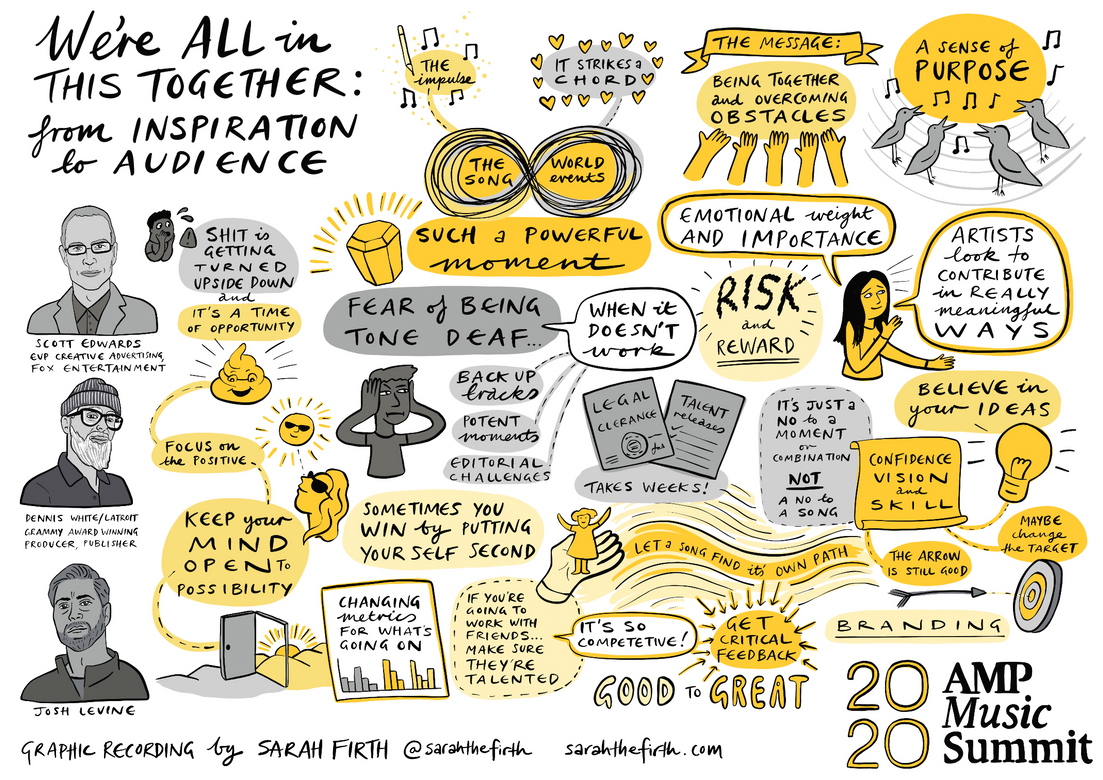 We're ALL in
THIS TOGETHER:
from INSPIRATION
to AUDIENCE
THE
impulse
IT STRIKES a
CHORD
THE
SONG
WORLD
events
THE MESSAGE:
BEING TOGETHER
and OVERCOMING
OBSTACLES
A SENSE of
PURPOSE
SCOTT EDWARDS
EVP CREATIVE ADVERTISING,
FOX ENTERTAINMENT
SHIT is
GETTING
TURNED
UPSIDE DOWN
and
IT'S A TIME
OF OPPORTUNITY
SUCH a POWERFUL
moment
FEAR of BEING
TONE DEAF...
WHEN it
DOESN'T
work
BACK UP
tracks
POTENT
moments
EDITORIAL
CHALLENGES
EMOTIONAL weight
AND IMPORTANCE
RISK
and
REWARD
ARTISTS
look to
CONTRIBUTE
in REALLY
meaningful
WAYS
LEGAL
CLERANCE
TALENT
releases
TAKES WEEKS!
IT'S JUST a
NO to a
MOMENT
or
COMBINATION
NOT
A NO to
A SONG
BELIEVE in
your IDEAS
CONFIDENCE
VISION
and
SKILL
MAYBE
change
the TARGET
THE ARROW
IS STILL GOOD
BRANDING
DENNIS WHITE/LATROIT
GRAMMY AWARD WINNING
PRODUCER, PUBLISHER
FOCUS on
the POSITIVE.
KEEP your
MIND
OPEN TO
POSSIBILITY
SOMETIMES YOU
WIN by PUTTING
YOUR SELF SECOND
LET a SONG FIND it's OWN PATH
JOSH LEVINE
CHANGING
metrics
FOR WHAT'S
GOING ON
IF YOU'RE
GOING TO
WORK WITH
FRIENDS...
MAKE SURE
THEY'RE
TALENTED
IT'S SO
COMPETETIVE!
GET
CRITICAL
FEEDBACK
GOOD TO GREAT
2020 AMP
Music
Summit
GRAPHIC RECORDING by SARAH FIRTH @sarahthefirth sarahthefirth.com